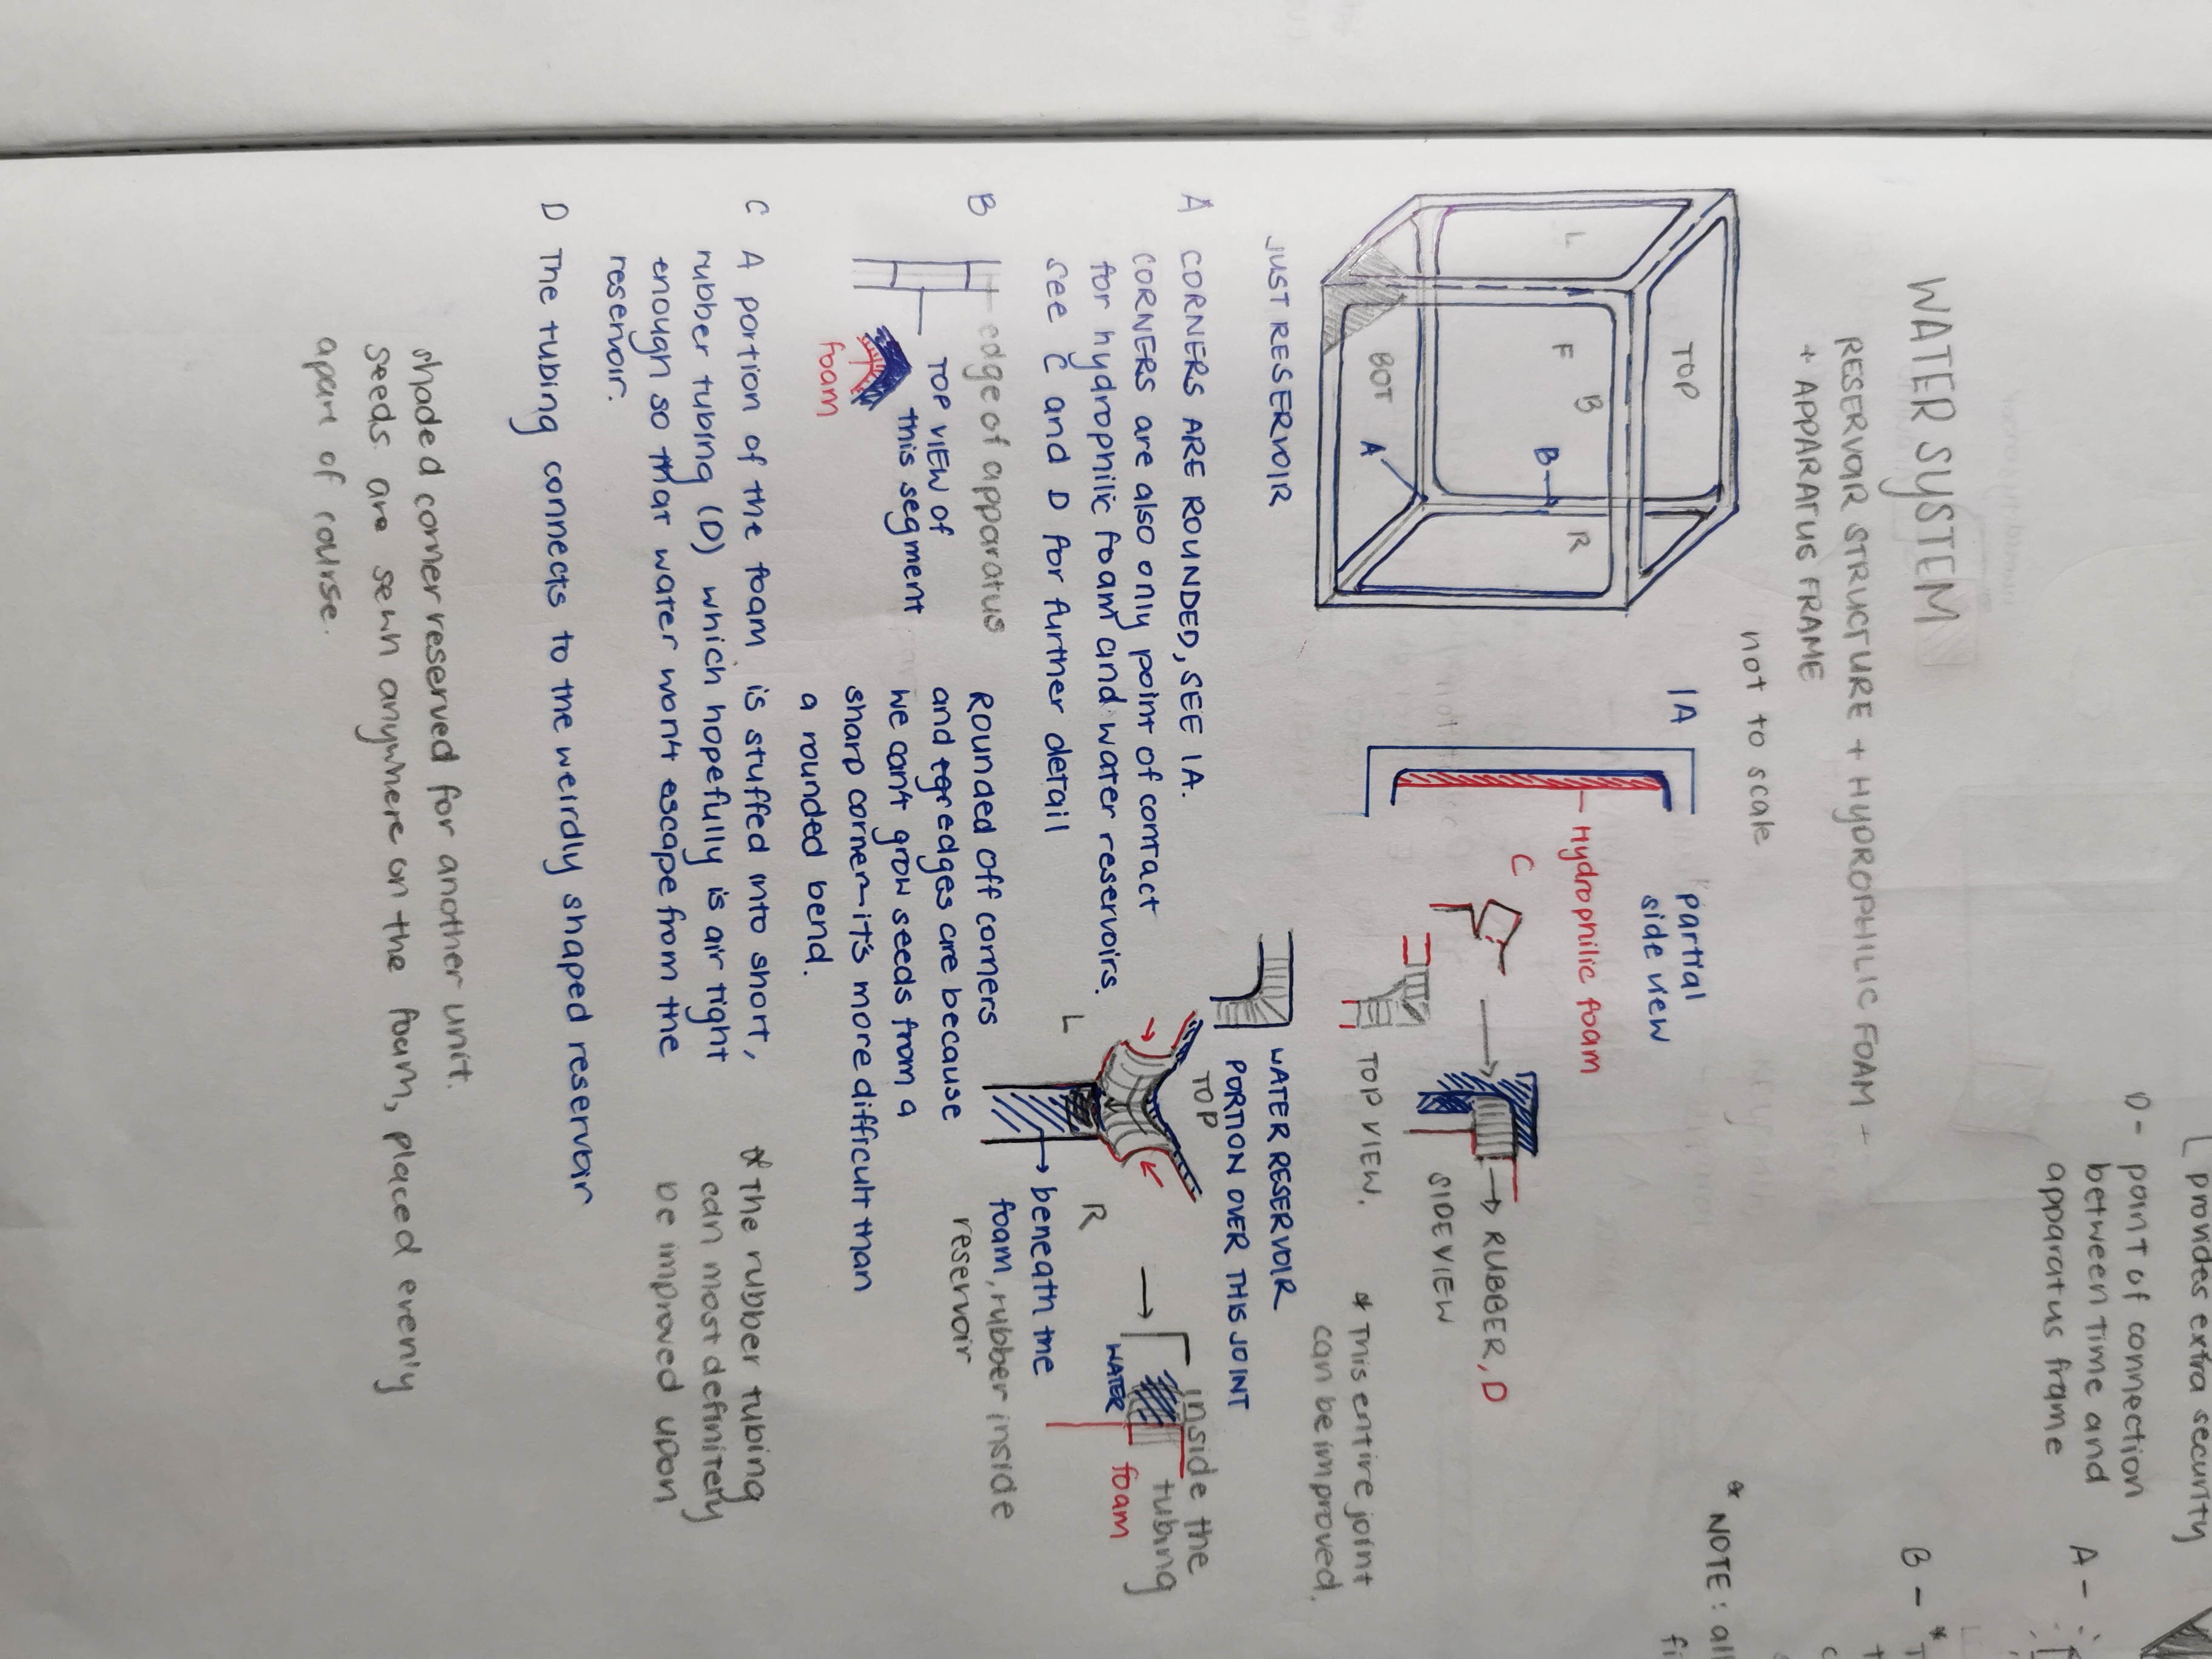 WATER SYSTEM
RESERVOIR STRUCTURE + HYDROPHILIC FOAM +
+ APPARATUS FRAME
not to scale
TOP
L
F
B
R
B
BOT
A
JUST RESERVOIR
1A
partial
side view
Hydrophilic foam
C
RUBBER, D
SIDE VIEW
TOP VIEW.
* This entire joint
can be improved.
WATER RESERVOIR
PORTION OVER THIS JOINT
TOP
L
R
inside the
tubing
WATER
foam
beneath the
foam, rubber inside
reservoir
A CORNERS ARE ROUNDED, SEE 1A.
CORNERS are also only point of contact
for hydrophilic foam and water reservoirs.
see C and D for further detail
B
edge of apparatus
TOP VIEW of
this segment
foam
Rounded off corners
and edges are because
we can't grow seeds from a
sharp corner - it's more difficult than
a rounded bend.
C A portion of the foam is stuffed into short,
rubber tubing (D) which hopefully is air tight
enough so that water won't escape from the
reservoir.
* The rubber tubing
can most definitely
be improved upon
D The tubing connects to the weirdly shaped reservoir
shaded corner reserved for another unit.
seeds are sewn anywhere on the foam, placed evenly
apart of course.
provides extra security
D - point of connection
between time and
apparatus frame
A -
B -
* NOTE: all